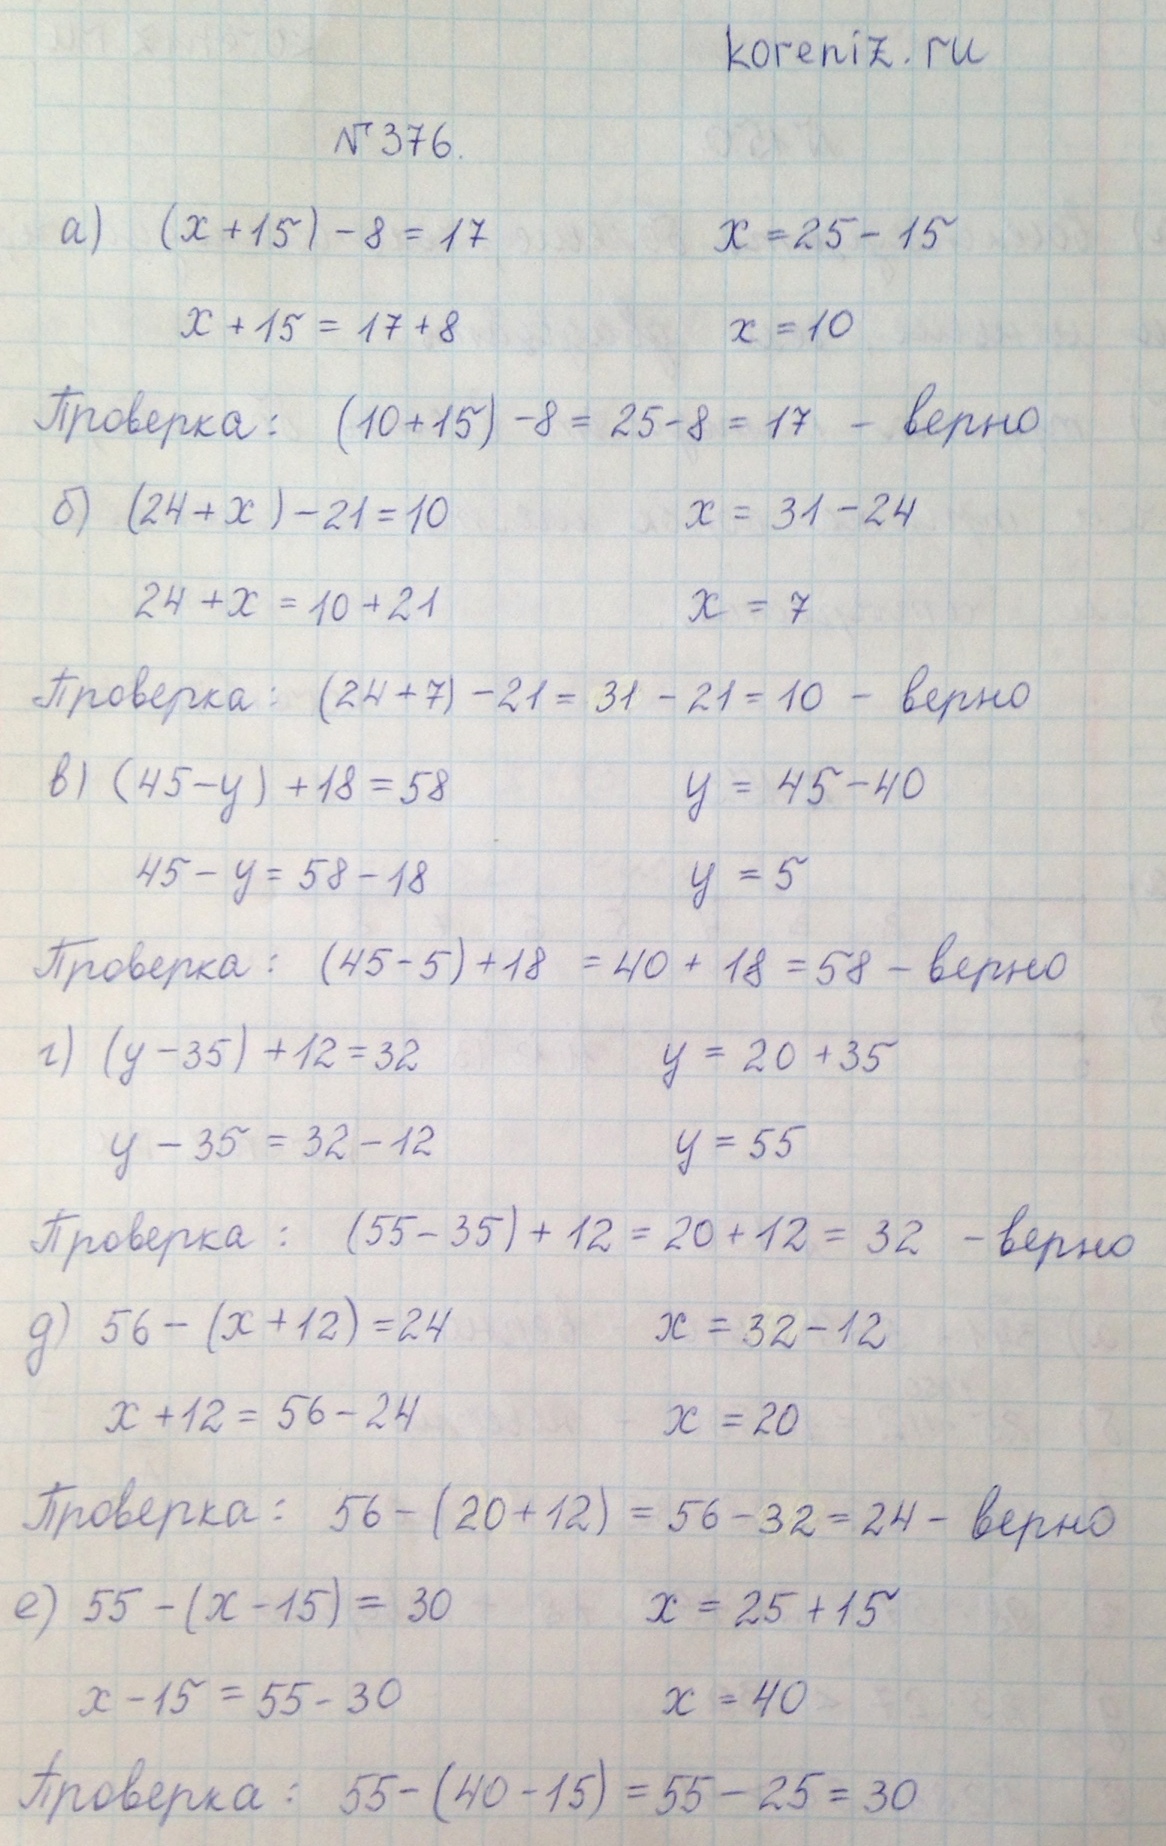 koreniz.ru
№376.
а) (x+15)-8=17 x=25-15
x+15=17+8 x=10
Проверка: (10+15)-8=25-8=17 - верно
б) (24+x)-21=10 x=31-24
24+x=10+21 x=7
Проверка: (24+7)-21=31-21=10 - верно
в) (45-y)+18=58 y=45-40
45-y=58-18 y=5
Проверка: (45-5)+18=40+18=58 - верно
г) (y-35)+12=32 y=20+35
y-35=32-12 y=55
Проверка: (55-35)+12=20+12=32 - верно
д) 56-(x+12)=24 x=32-12
x+12=56-24 x=20
Проверка: 56-(20+12)=56-32=24 - верно
е) 55-(x-15)=30 x=25+15
x-15=55-30 x=40
Проверка: 55-(40-15)=55-25=30